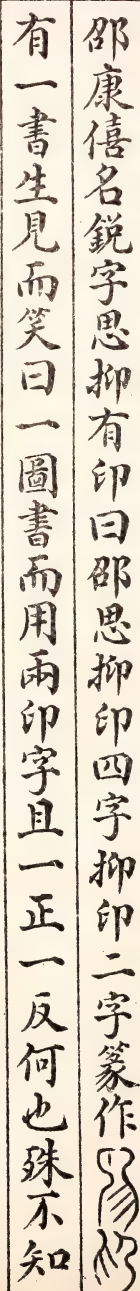 邵康僖名鋭字思抑有印曰邵思抑印四字抑印二字篆作
有一書生見而笑曰一圖書而用兩印字且一正一反何也殊不知